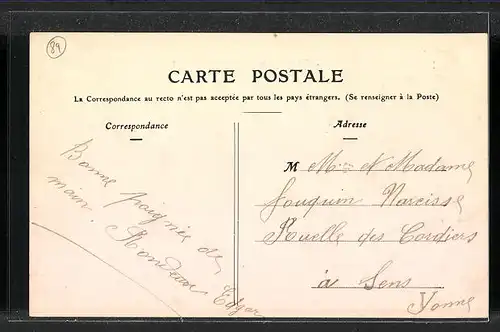 89
CARTE POSTALE
La Correspondance au recto n'est pas acceptée par tous les pays étrangers. (Se renseigner à la Poste)
Correspondance
Bonne poignée de
main.
Adresse
M Mr et Madame
Jouquin Narcisse
Ruelle des Cordiers
à Sens
Yonne